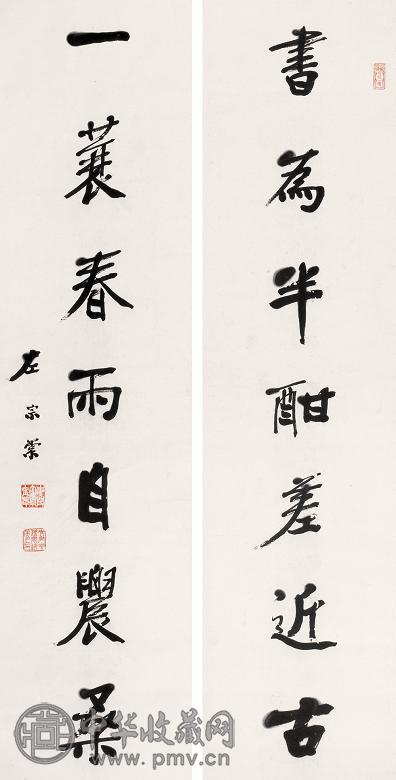 書為半酣差近古
一蓑春雨自農桑
左宗棠
中华收藏网
www.pmv.cn